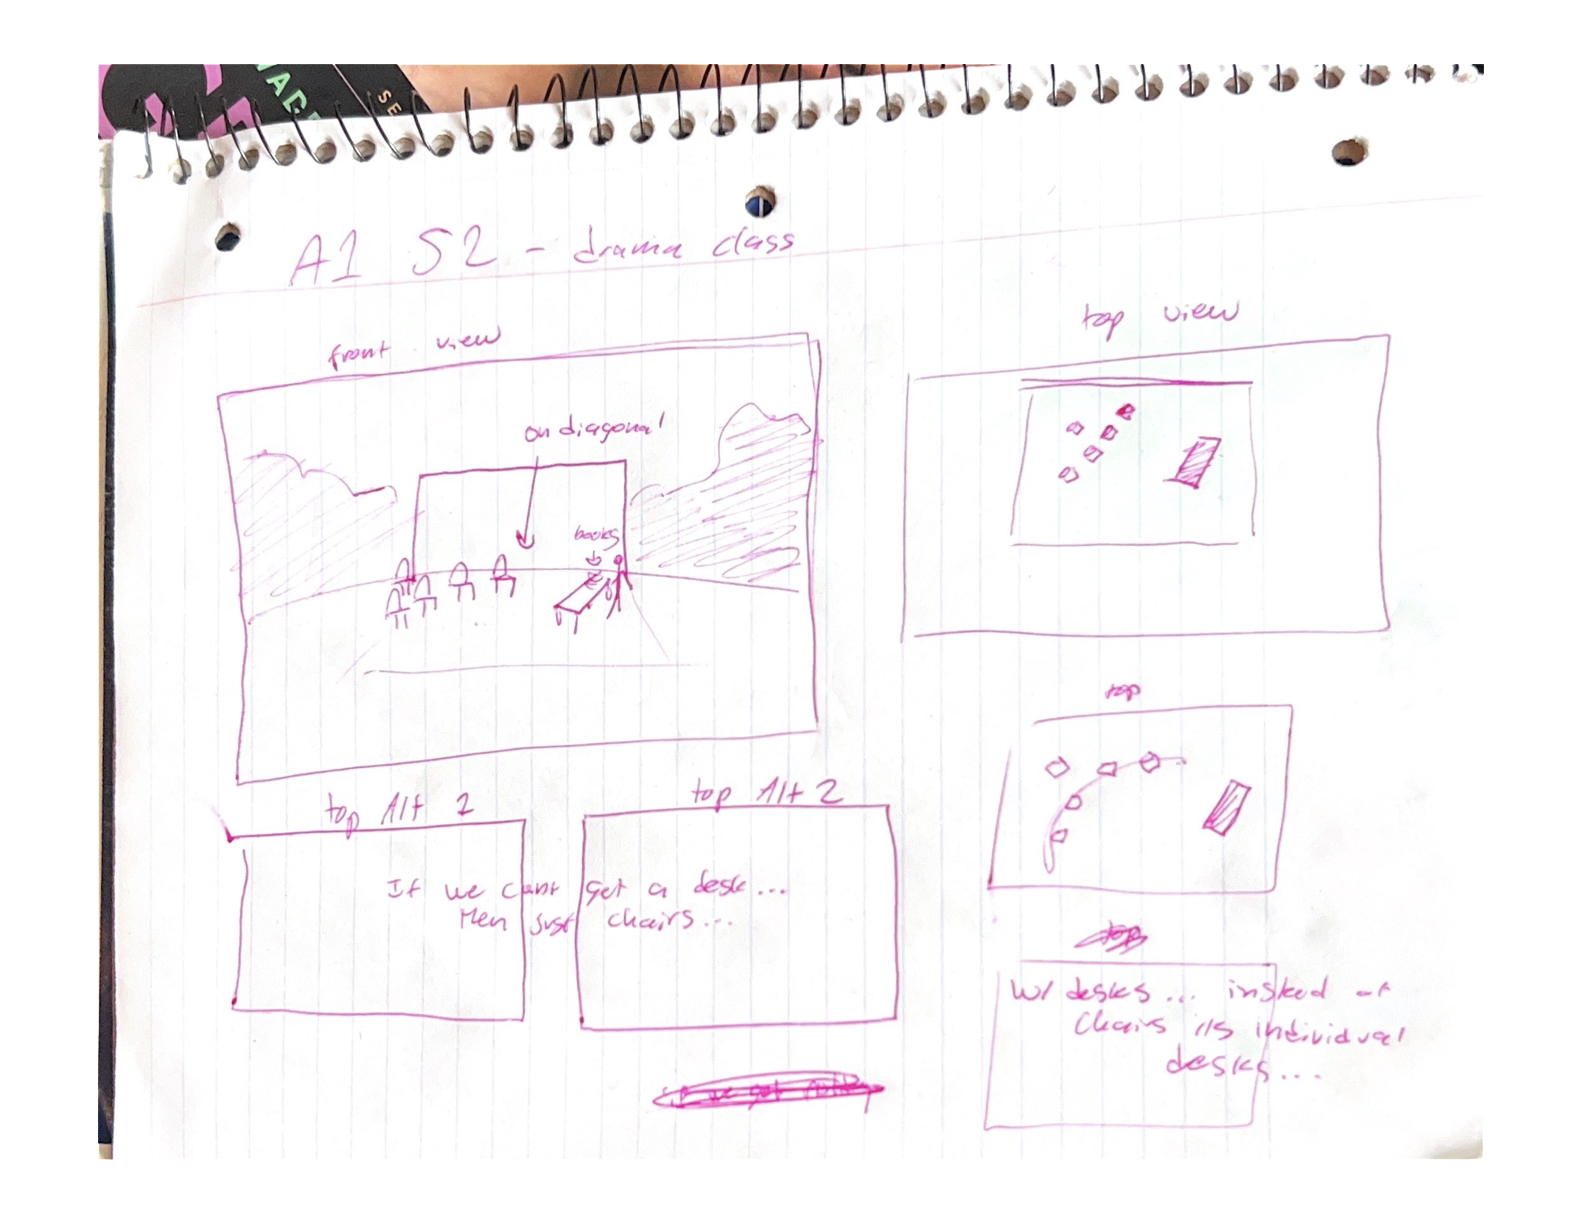 A1 S2 - drama class
front view
on diagonal
books
top view
top
top Alt 1
top Alt 2
If we cant get a desk...
then just chairs...
W/ desks... instead of
chairs its individual
desks...